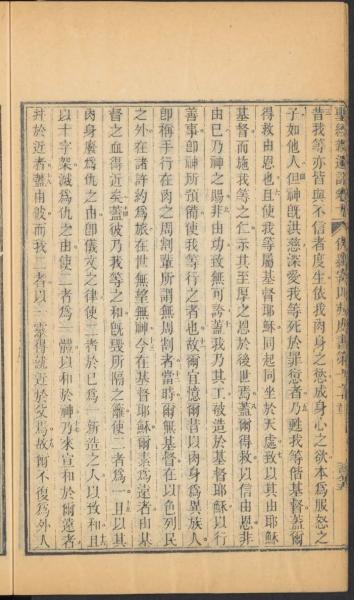 昔我等亦皆與不信者度生依我肉身之慾成身心之欲本為服怒之
子如他人但神既洪慈深愛我等死於罪愆者乃甦我等偕基督蓋爾
得救由恩也且使我等屬基督耶穌同起同坐於天處致以其由耶穌
基督而施我等之仁示其至厚之恩於後世焉蓋爾得救以信由恩非
由已乃神之賜非由功致無可誇蓋我乃其工被造於基督耶穌以行
善事即神所預備使我等行之者也故爾宜憶爾昔以肉身為異族人
即稱手行在肉之周割輩所謂無周割者當時爾無基督在以色列民
之外在諸許約為旅在世無望無神今在基督耶穌爾素為遠者由基
督之血得近矣蓋彼乃我等之和既毀所隔之籬使二者為一且以其
肉身廢為仇之由即儀文之律使二者於已為一新造之人以致和且
以十字架滅為仇之由使二者為一體以和於神乃來宣和於爾遠者
并於近者蓋由彼而我二者以一靈得就近於父為故爾不復為外人